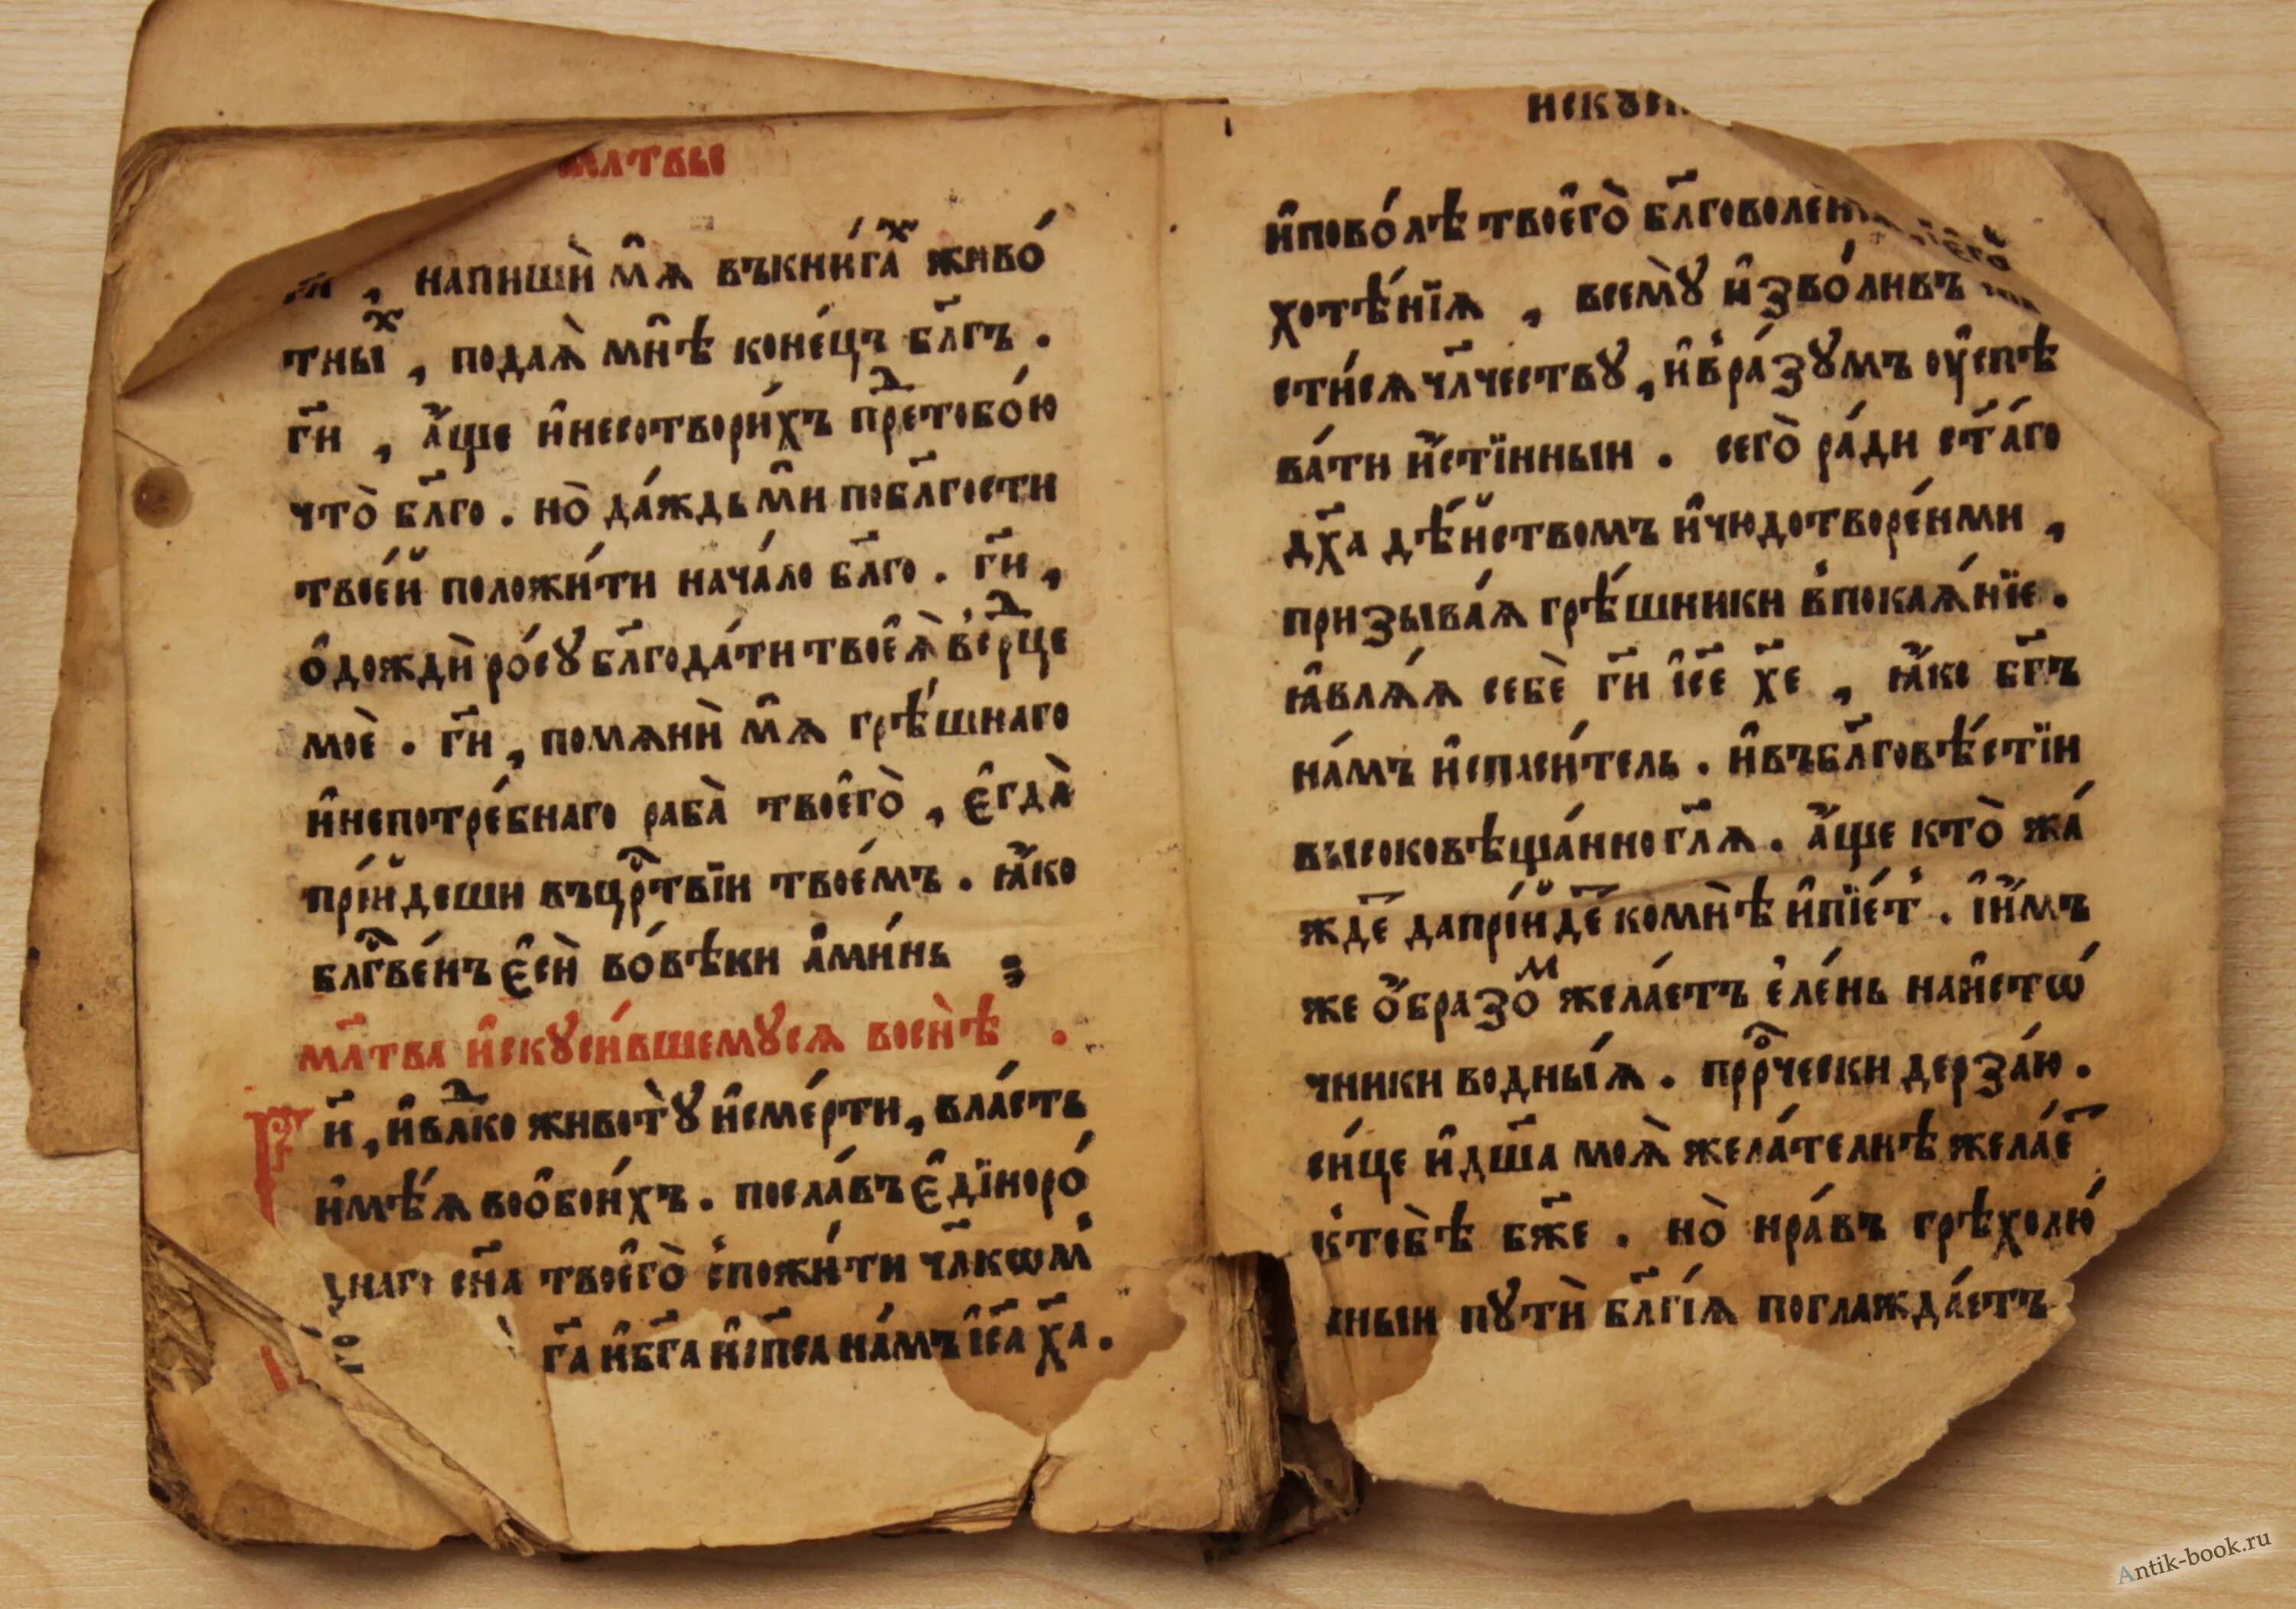 млтвы
напишѝ мѧ̑ въкни́гаⷯ живо́
тныⷯ, подаѧ̀ мнѣ̑ коне́цъ бл҃гъ.
гн҃и, а҆́ще и҆несотвори́хъ преⷣтобо́ю
что̀ бл҃го. но̀ да́ждь мѝ побл҃гости
твое́й положи́ти нача́ло бл҃го. гн҃и,
ѻ҆дождѝ ро́сꙋ бл҃года́ти твоеѧ̀ в҆сеⷣрце
моѐ. гн҃и, помѧнѝ мѧ̑ грѣ́шнаго
и҆непотре́бнаго раба̀ твоего̀, є҆гда̀
прїи́деши въцрⷭ҇твїи твое́мъ. ꙗ҆́ко
блгⷭ҇ве́нъ є҆сѝ во́вѣки а҆ми́нь
мл҃тва и҆скꙋси́вшемꙋсѧ воснѣ̀.
Гн҃и, и҆влⷣко животꙋ̀ и҆сме́рти, вла́сть
и҆мѣ́ѧ воѻ҆бои́хъ. посла́въ є҆дїноро́
днаго сн҃а твоего̀ с̾пожи́ти чл҃кѡм̾
гⷭ҇а и҆бг҃а и҆сп҃са на́мъ і҆с҃а х҃а.
искꙋси
и҆пово́лѣ твоегѡ̀ бл҃говоле́н
хотѣ́нїѧ, всемꙋ̀ и҆зво́ливъ
сти́сѧ чл҃честву, и҆в̾ра́зꙋмъ ᲂу҆спѣ
ва́ти и҆́стїнныи. сего̀ ра́ди ст҃а́го
дх҃а дѣ́йствомъ и҆чюдотворе́нми,
призыва́ѧ грѣ́шники в̾покаѧ́нїе.
ꙗ҆влѧ́ѧ себѐ гн҃и і҆с҃е х҃е, ꙗ҆́ко бг҃ъ
на́мъ и҆спаси́тель. и҆въбл҃говѣ́стїи
высоковѣща́нно гл҃ѧ. а҆́ще кто̀ жа́
жде҃ даприи́де҃ комнѣ̀ и҆пїе́т̾. і҆и҆́мъ
же ѻ҆́бразоⷨ жела́етъ є҆ле́нь наи҆стѡ́
чники водны́ѧ. прⷪ҇рчески дерза́ю.
си́це и҆дш҃а моѧ̀ жела́телнѣ жела́е҃
к̾тебѣ̀ бж҃е. но̀ нра́въ грѣхолю́
бныи пꙋтѝ бл҃гі́ѧ поглажда́етъ
Antik-book.ru